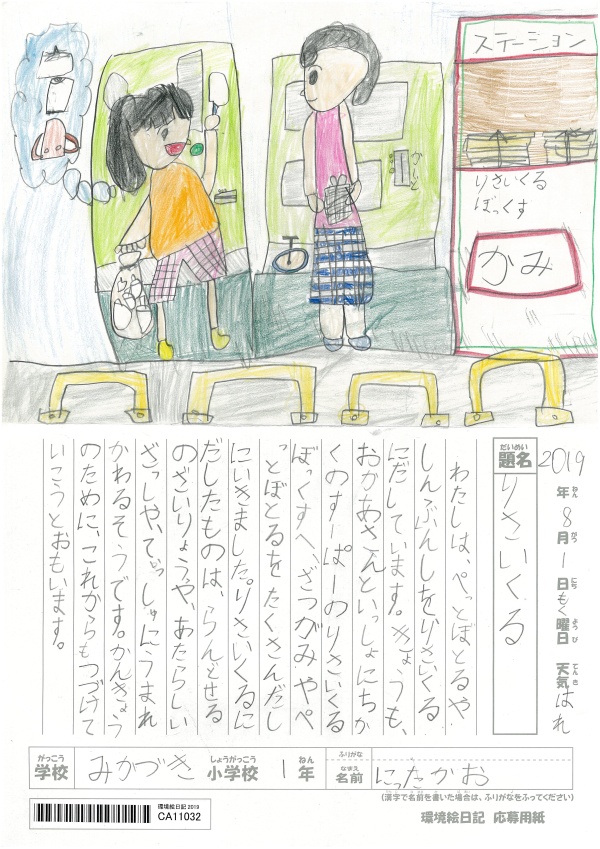 ステーション
りさいくる
ぼっくす
かみ
2019年8月1日もく曜日 天気はれ
ねん がつ にち ようび てんき
だいめい
題名 りさいくる
わたしは、ぺっとぼとるや
しんぶんしをりさいくる
にだしています。きょうも、
おかあさんといっしょにちか
くのすーぱーのりさいくる
ぼっくすへ、ざつがみやぺ
っとぼとるをたくさんだし
にいきました。りさいくるに
だしたものは、らんどせる
のざいりょうや、あたらしい
ざっしや、てぃっしゅにうまれ
かわるそうです。かんきょう
のために、これからもつづけて
いこうとおもいます。
がっこう しょうがっこう ねん ふりがな
学校 みかづき 小学校 1年
なまえ
名前 にったかお
(漢字で名前を書いた場合は、ふりがなをふってください)
環境絵日記 2019
CA11032
環境絵日記 応募用紙